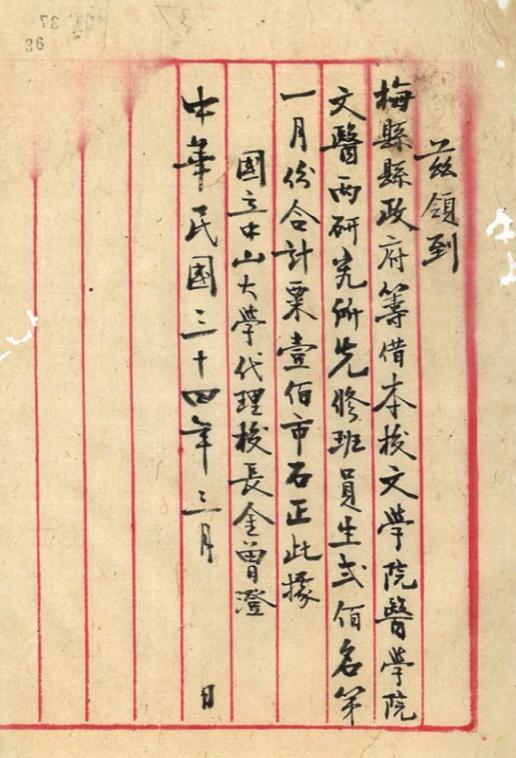 36
茲領到
梅縣縣政府籌借本校文學院醫學院
文醫兩研究所先修班員生弍佰名第
一月份合計粟壹佰市石正此據
國立中山大學代理校長金曾澄
中華民國三十四年三月 日